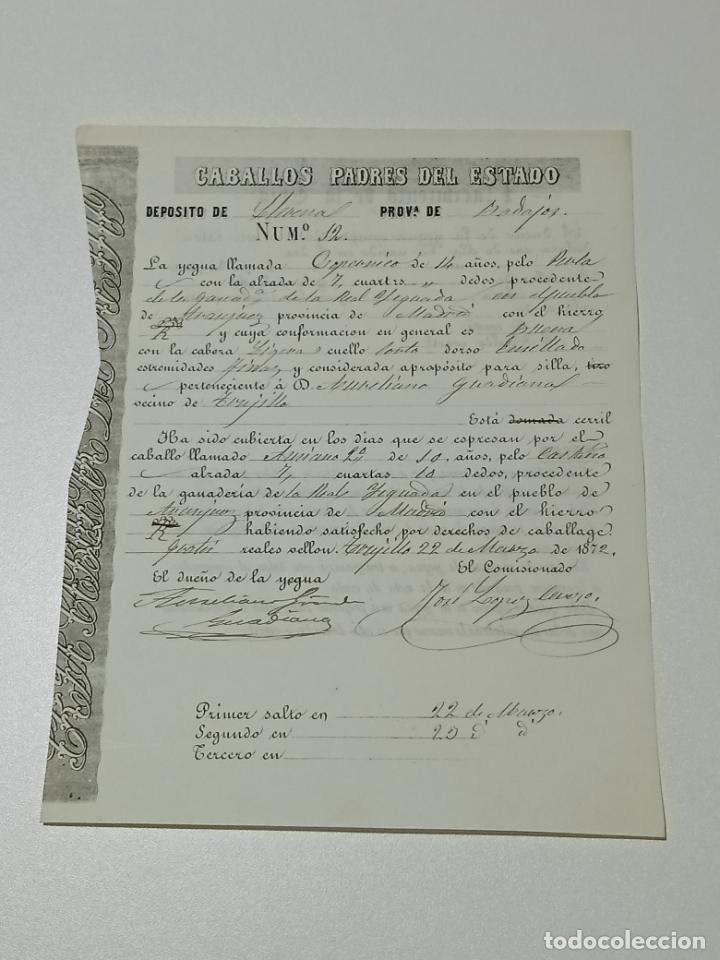 CABALLOS PADRES DEL ESTADO
DEPOSITO DE Llerena PROVª DE Badajoz.
NUMº 12.
La yegua llamada Copernico de 14 años, pelo
con la alzada de 7 cuartˢ " dedos procedente
de la ganadª de la Real Yeguada en el pueblo
de Aranjuez provincia de Madrid con el hierro
y cuya conformacion en general es buena
con la cabeza Ligera cuello corto dorso Ensillado
estremidades finas y considerada apropósito para silla, tiro
perteneciente á D. Aureliano Guadiana
vecino de Trujillo
Está domada cerril
Ha sido cubierta en los dias que se espresan por el
caballo llamado 2º de 10 años, pelo Castaño
alzada 7 cuartas 10 dedos, procedente
de la ganadería de la Real Yeguada en el pueblo de
Aranjuez provincia de Madrid con el hierro
habiendo satisfecho por derechos de caballage
Gratis reales vellon. Trujillo 22 de Marzo de 1872.
El dueño de la yegua El Comisionado
Aureliano Guadiana José Lopez
Primer salto en 22 de Marzo.
Segundo en 25 d d
Tercero en
todocoleccion